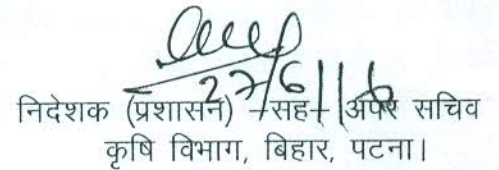 27/6/16
निदेशक (प्रशासन) -सह- अपर सचिव
कृषि विभाग, बिहार, पटना।